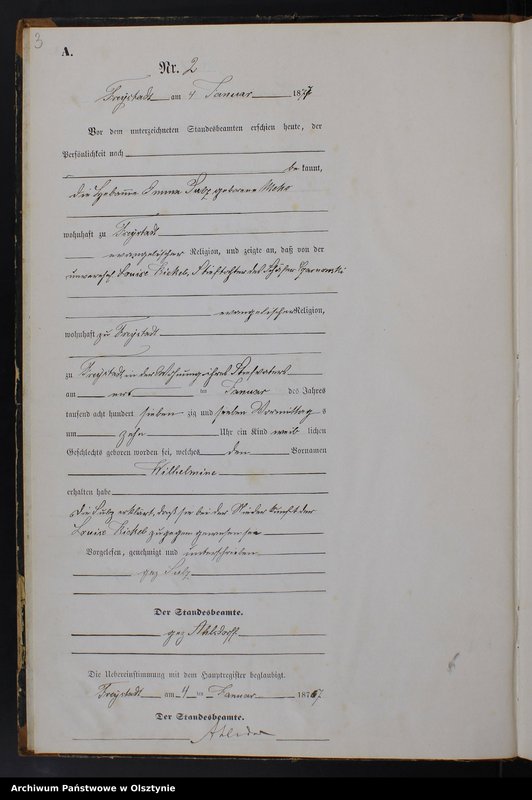 3
A.
Nr. 2
Freystadt am 4 Januar 1877
Vor dem unterzeichneten Standesbeamten erschien heute, der
Persönlichkeit nach
be kannt,
die Hebamme Emma Sulz geborene
wohnhaft zu Freystadt
evangelischer Religion, und zeigte an, daß von der
unverehel Louise Nickel, Stieftochter des
evangelischer Religion,
wohnhaft zu Freystadt
zu Freystadt in der Wohnung ihres Stiefvaters
am ers ten Januar des Jahres
tausend acht hundert sieben zig und sieben Vormittag s
um zehn Uhr ein Kind weib lichen
Geschlechts geboren worden sei, welches den Vornamen
Wilhelmine
erhalten habe
die Sulz erklärt, daß sie bei der Niederkunft der
Louise Nickel zugegen gewesen sei
Vorgelesen, genehmigt und unterschrieben
gez Sulz
Der Standesbeamte.
gez Ahlsdorff
Die Uebereinstimmung mit dem Hauptregister beglaubigt.
Freystadt am 4 ten Januar 1877
Der Standesbeamte.
Archiwum Państwowe w Olsztynie